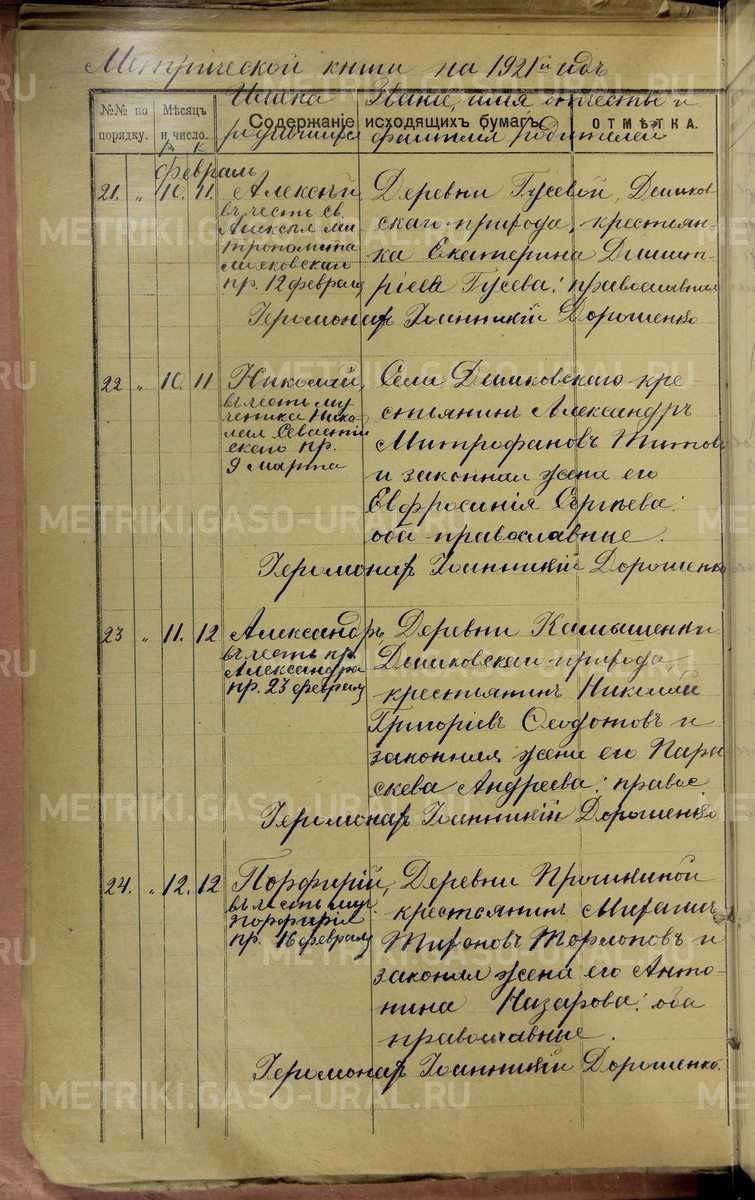 Метрической книги на 1921й годъ
№№ по порядку.
Мѣсяцъ и число.
Содержаніе исходящихъ бумагъ.
ОТМѢТКА.
Имена родившихся
Званіе, имя отчество и фамилія родителей
р. к.
февраль
21. „ 10. 11. Алексѣй,
въ честь св.
Алексѣя ми-
трополита
московскаго
пр. 12 февраля
Деревни Гусевой, Деиков-
скаго прихода, крестьян-
ка Екатерина Димит-
ріева Гусева; православная
Іеромонахъ Іоанникій Дорошенко
22 „ 10. 11 Николай,
въ честь му
ченика Нико-
лая Севастій
скаго пр.
9 марта
Села Деиковскаго кре-
стьянинъ Александръ
Митрофановъ Титовъ
и законная жена его
Евфросинія Сергѣева:
оба православные.
Іеромонахъ Іоанникій Дорошенко
23 „ 11. 12 Александръ,
въ честь пр.
Александра
пр. 23 февраля
Деревни Камышенки
Деиковскаго прихода,
крестьянинъ Николай
Григоріевъ Феофоновъ и
законная жена его Пара-
скева Андреева; правос
Іеромонахъ Іоанникій Дорошенко
24. „ 12. 12 Порфирій,
въ честь муч.
Порфирія
пр. 16 февраля
Деревни Прошкиной
крестьянинъ Михаилъ
Тихоновъ Торлоповъ и
законая жена его Анто-
нина Назарова: оба
православные.
Іеромонахъ Іоанникій Дорошенко.
METRIKI.GASO-URAL.RU